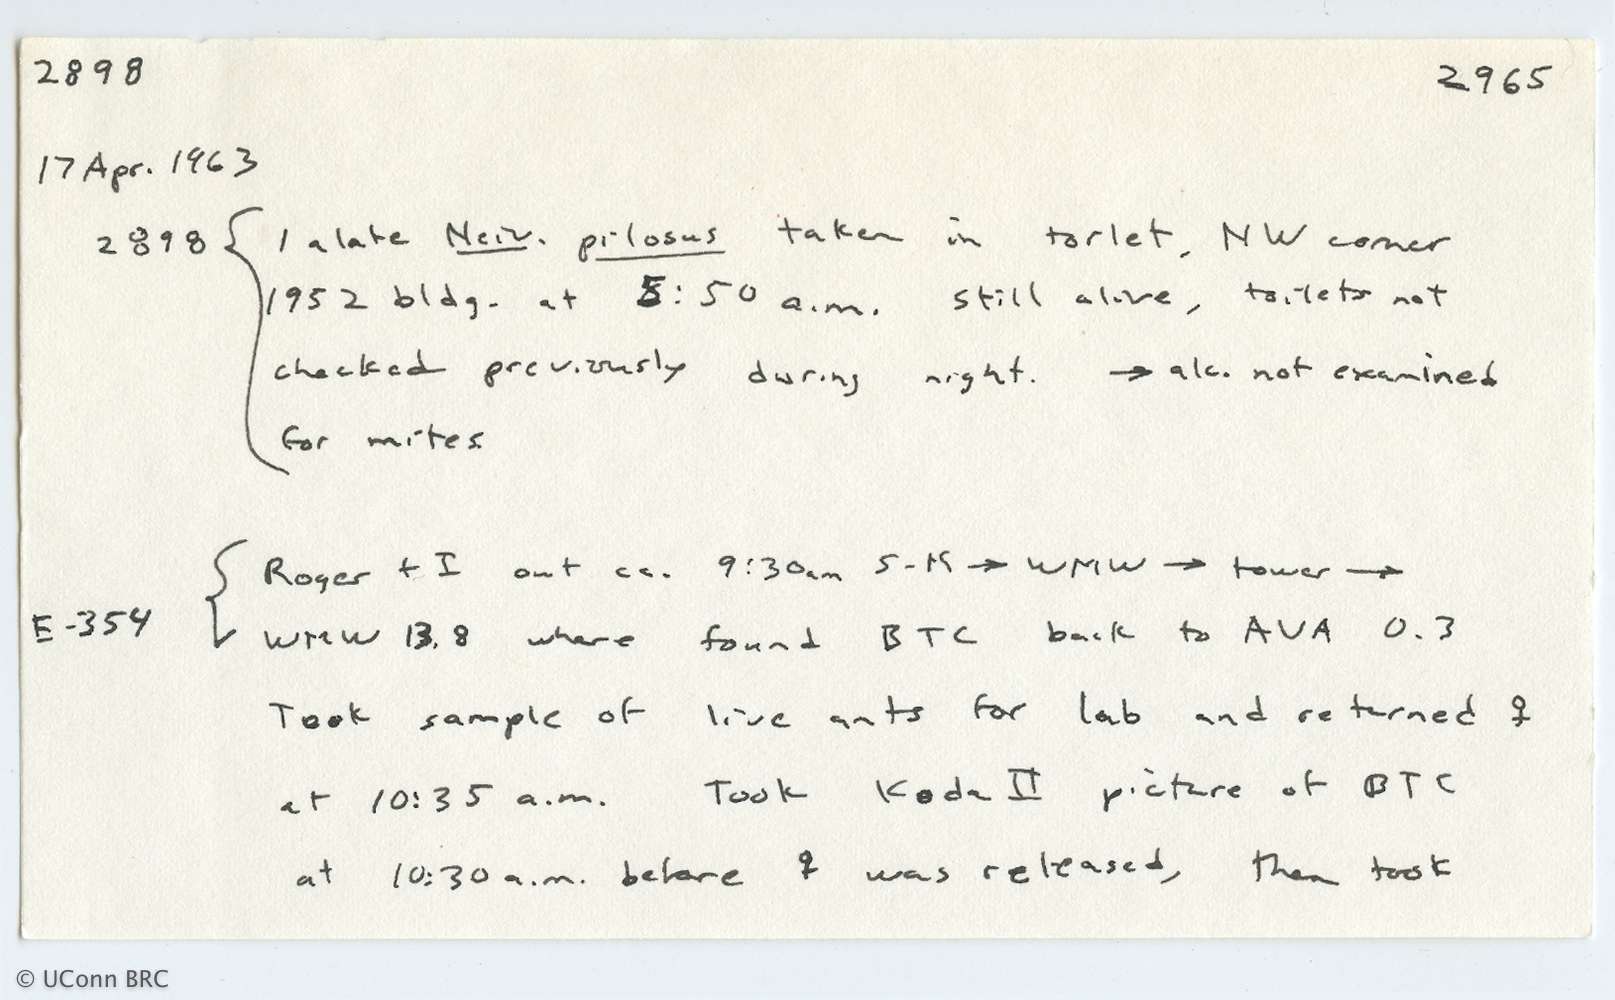 2898 2965
17 Apr. 1963
2898 { 1 alate Neiv. pilosus taken in toilet, NW corner
1952 bldg. at 5:50 a.m. still alive, toilets not
checked previously during night. → alc. not examined
for mites
Roger + I out ca. 9:30am S-M → WMW → tower →
E-354 { WMW 13.8 where found BTC back to AVA 0.3
Took sample of live ants for lab and returned ♀
at 10:35 a.m. Took Koda II picture of BTC
at 10:30 a.m. before ♀ was released, then took
© UConn BRC